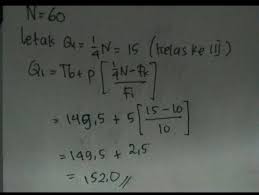 N=60
letak Q₁ = 1/4 N = 15 (kelas ke iij)
Q₁ = Tb + p [ (1/4 N - Fk) / Fi ]
= 149,5 + 5 [ (15 - 10) / 10 ]
= 149,5 + 2,5
= 152,0 //